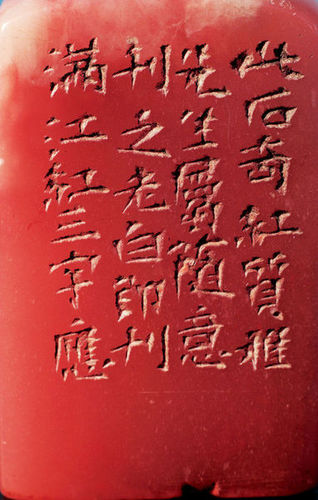 此石奇紅質雅
先生屬隨意
刊之老白即刊
滿江紅三字應